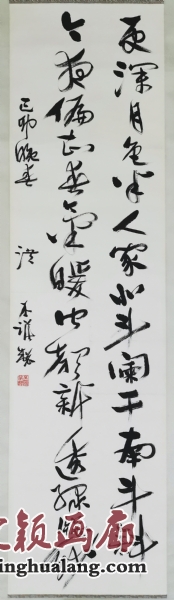 更深月色半人家北斗阑干南斗斜
今夜偏知春气暖虫声新透绿
己卯晚春
洪
文颖画廊